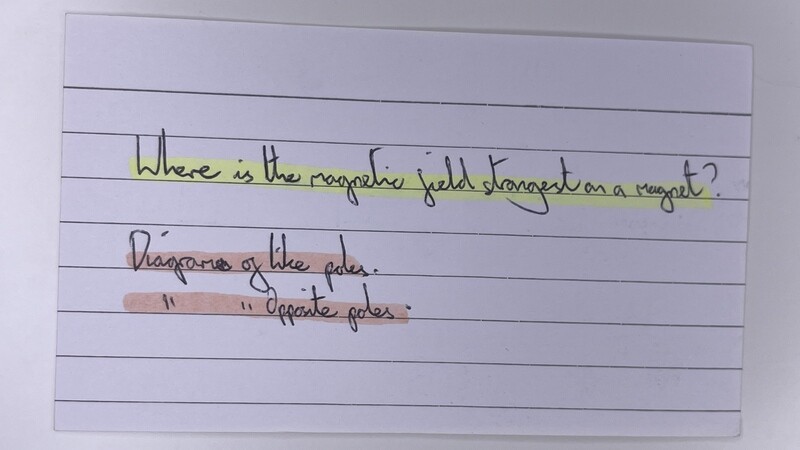 Where is the magnetic field strongest on a magnet?
Diagrams of like poles.
" " Opposite poles.